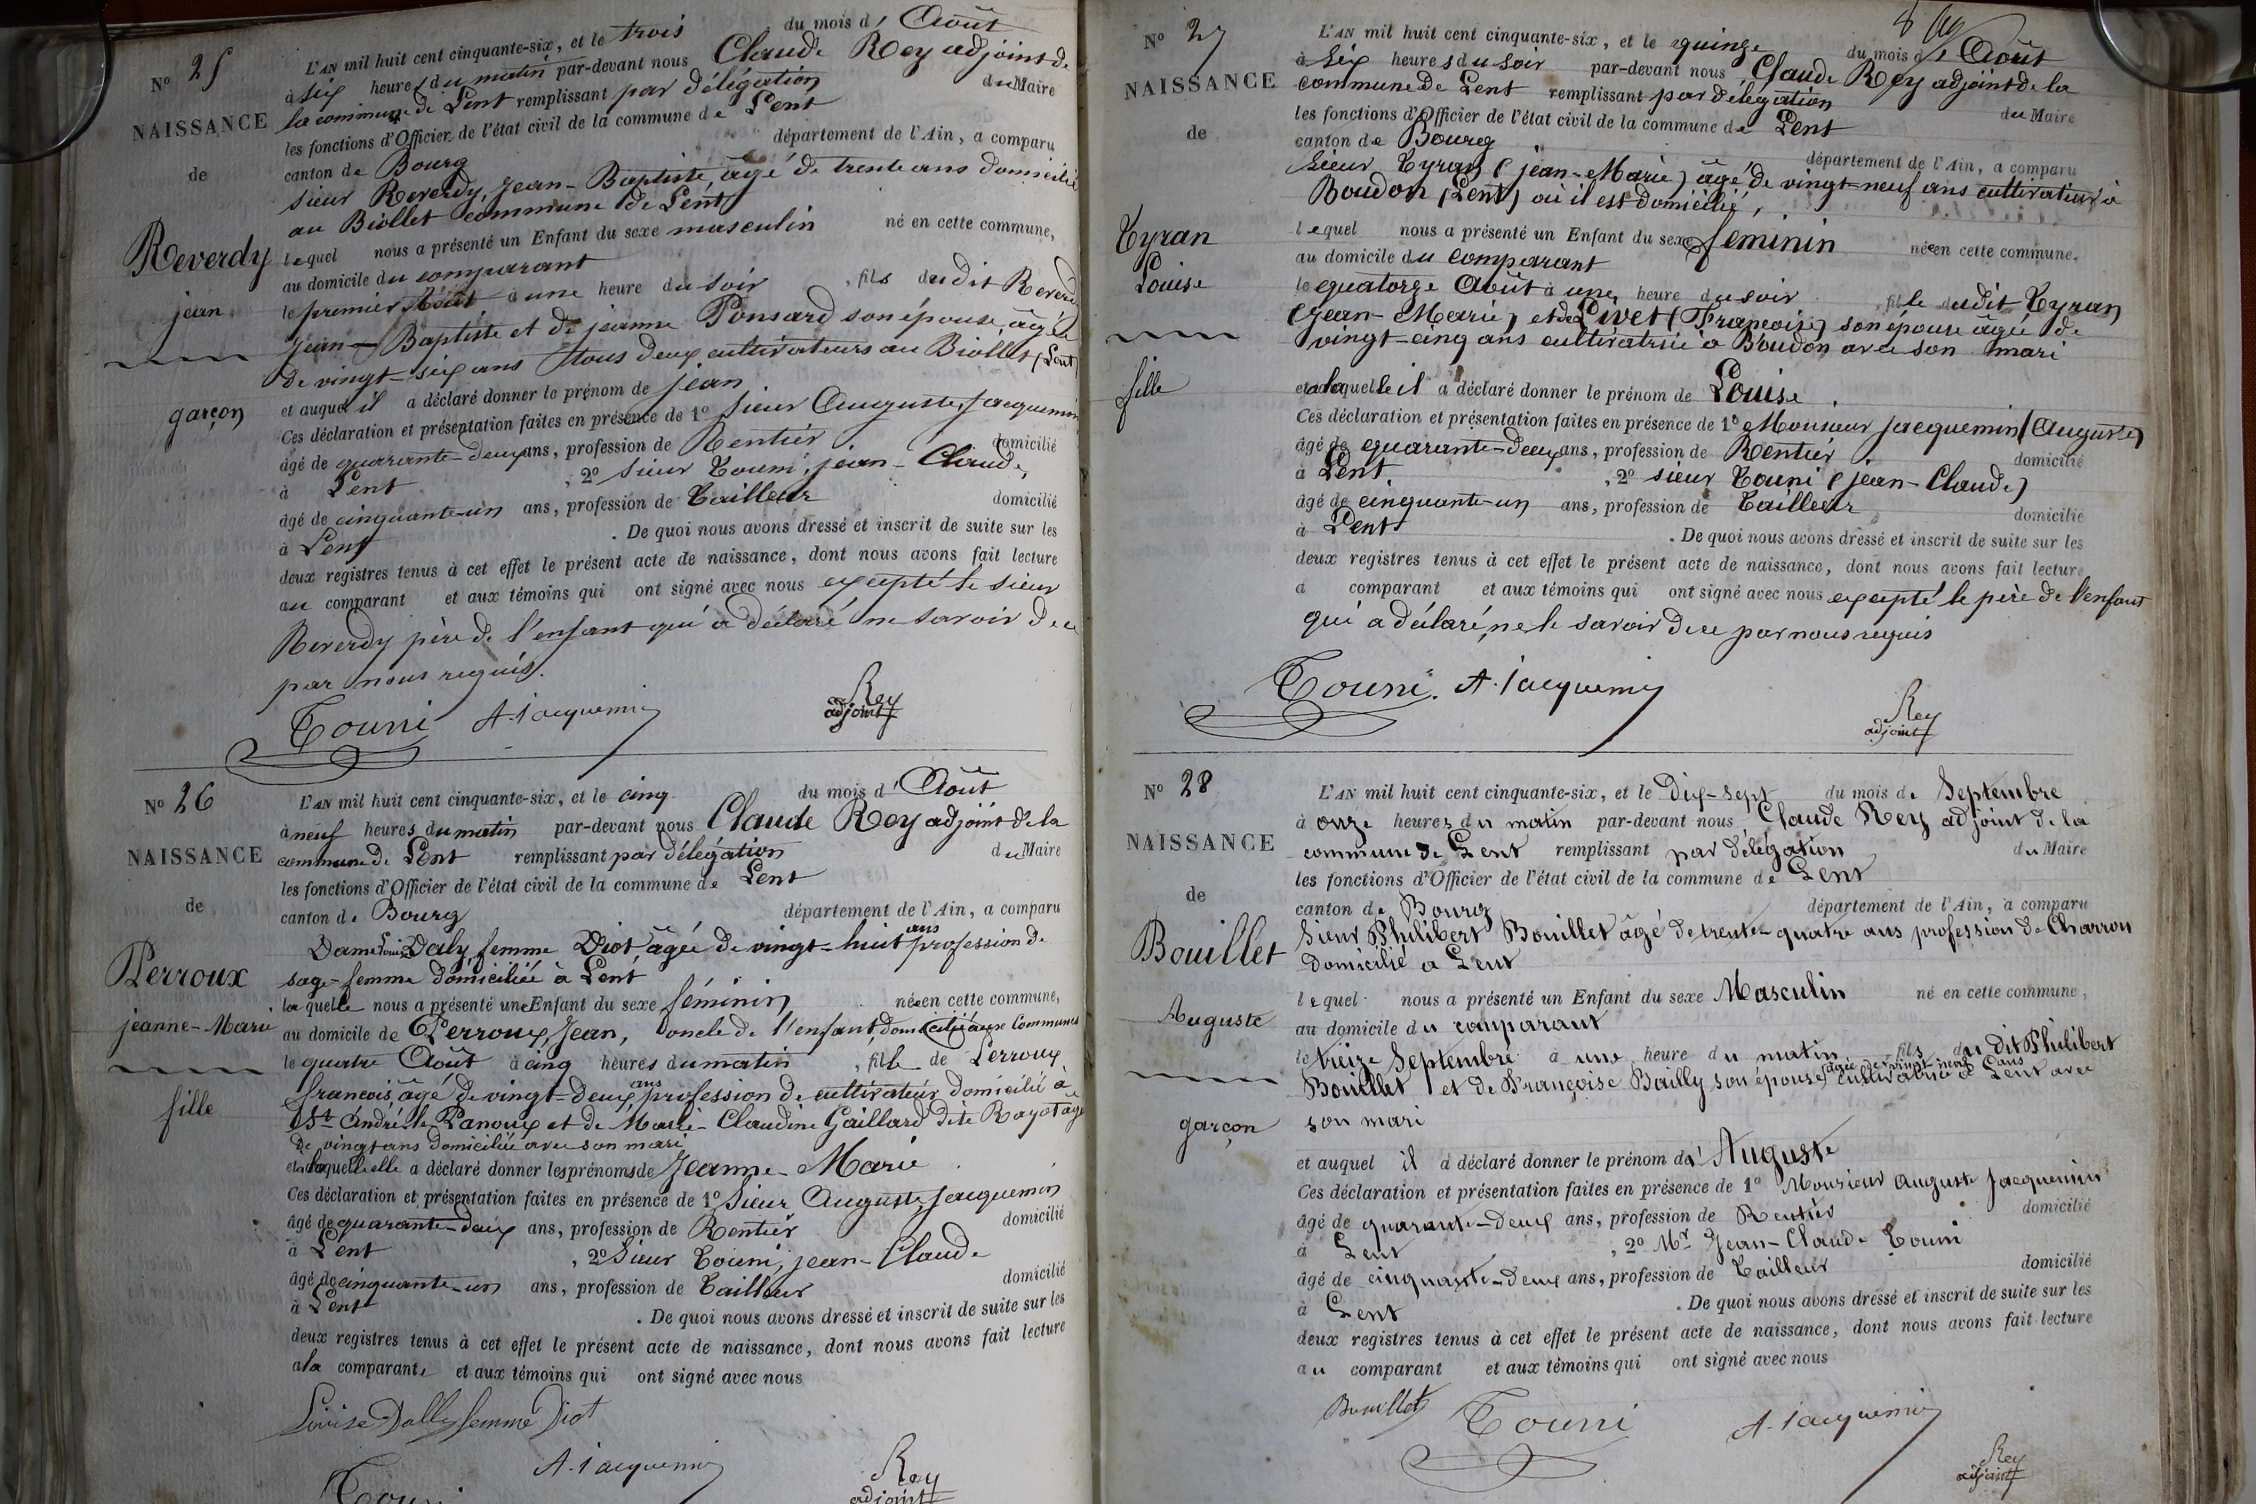 N° 25
NAISSANCE
de
Reverdy
jean
garçon
L'AN mil huit cent cinquante-six, et le trois du mois d'Août
à six heures du matin par-devant nous Claude Rey adjoint de
la commune de Lent remplissant par délégation du Maire
les fonctions d'Officier de l'état civil de la commune de Lent
canton de Bourg département de l'Ain, a comparu
sieur Reverdy, Jean-Baptiste âgé de trente ans domicilié
au Biollet commune de Lent
lequel nous a présenté un Enfant du sexe masculin né en cette commune,
au domicile du comparant
le premier Août à une heure du soir, fils dudit Reverdy
Jean-Baptiste et de jeanne Ponsard son épouse, âgée
de vingt-six ans tous deux cultivateurs au Biollet (Lent)
et auquel il a déclaré donner le prénom de jean
Ces déclaration et présentation faites en présence de 1° sieur Auguste Jacquemin
âgé de quarante-deux ans, profession de Rentier domicilié
à Lent, 2° sieur Touni, jean-Claude,
âgé de cinquante-un ans, profession de Tailleur domicilié
à Lent. De quoi nous avons dressé et inscrit de suite sur les
deux registres tenus à cet effet le présent acte de naissance, dont nous avons fait lecture
au comparant et aux témoins qui ont signé avec nous excepté le sieur
Reverdy père de l'enfant qui a déclaré ne savoir de ce
par nous requis.
Touni A. Jacquemin Rey
adjoint
N° 26
NAISSANCE
de
Perroux
jeanne-Marie
fille
L'AN mil huit cent cinquante-six, et le cinq du mois d'Août
à neuf heures du matin par-devant nous Claude Rey adjoint de la
commune de Lent remplissant par délégation du Maire
les fonctions d'Officier de l'état civil de la commune de Lent
canton de Bourg département de l'Ain, a comparu
Dame Louise Daly, femme Diot âgée de vingt-huit ans profession de
sage-femme domiciliée à Lent
laquelle nous a présenté un Enfant du sexe féminin née en cette commune,
au domicile de Perroux, Jean, oncle de l'enfant, domicilié
le quatre Août à cinq heures du matin, fille de Perroux
françois, âgé de vingt-deux ans profession de cultivateur domicilié à
St André le Panoux et de Marie-Claudine Gaillard dite Rayot âgé
de vingt ans domiciliée avec son mari
et à laquelle elle a déclaré donner les prénoms de Jeanne-Marie
Ces déclaration et présentation faites en présence de 1° sieur Auguste Jacquemin
âgé de quarante-deux ans, profession de Rentier domicilié
à Lent, 2° Sieur Touni, jean-Claude
âgé de cinquante-un ans, profession de Tailleur domicilié
à Lent. De quoi nous avons dressé et inscrit de suite sur les
deux registres tenus à cet effet le présent acte de naissance, dont nous avons fait lecture
a la comparante et aux témoins qui ont signé avec nous
Louise Dally femme Diot
A. Jacquemin Rey
Touni adjoint
N° 27
NAISSANCE
de
Tyran
Louise
fille
L'AN mil huit cent cinquante-six, et le quinze du mois d'Août
à six heures du soir par-devant nous Claude Rey adjoint de la
commune de Lent remplissant par délégation du Maire
les fonctions d'Officier de l'état civil de la commune de Lent
canton de Bourg département de l'Ain, a comparu
Sieur Tyran (jean-Marie) âgé de vingt-neuf ans cultivateur à
Boudon (Lent) où il est domicilié,
lequel nous a présenté un Enfant du sexe féminin née en cette commune.
au domicile du comparant
le quatorze Août à une heure du soir, fille dudit Tyran
(Jean-Marie) et de Livet (Françoise) son épouse âgée de
vingt-cinq ans cultivatrice à Boudon avec son mari
et à laquelle il a déclaré donner le prénom de Louise.
Ces déclaration et présentation faites en présence de 1° Monsieur Jacquemin (Auguste)
âgé de quarante-deux ans, profession de Rentier domicilié
à Lent, 2° sieur Touni (jean-Claude)
âgé de cinquante-un ans, profession de Tailleur domicilié
à Lent. De quoi nous avons dressé et inscrit de suite sur les
deux registres tenus à cet effet le présent acte de naissance, dont nous avons fait lecture
a comparant et aux témoins qui ont signé avec nous excepté le père de l'enfant
qui a déclaré, ne le savoir de ce par nous requis
Touni. A. Jacquemin
Rey
adjoint
N° 28
NAISSANCE
de
Bouillet
Auguste
garçon
L'AN mil huit cent cinquante-six, et le Dix-sept du mois de Septembre
à onze heures du matin par-devant nous Claude Rey adjoint de la
commune de Lent remplissant par délégation du Maire
les fonctions d'Officier de l'état civil de la commune de Lent
canton de Bourg département de l'Ain, a comparu
Sieur Philibert Bouillet âgé de trente-quatre ans profession de Charron
domicilié à Lent
lequel nous a présenté un Enfant du sexe Masculin né en cette commune,
au domicile du comparant
le treize Septembre à une heure du matin, fils du dit Philibert
Bouillet et de Françoise Bailly son épouse, âgée de vingt neuf ans cultivatrice à Lent avec
son mari
et auquel il a déclaré donner le prénom d'Auguste
Ces déclaration et présentation faites en présence de 1° Monsieur Auguste Jacquemin
âgé de quarante-deux ans, profession de Rentier domicilié
à Lent, 2° Mr Jean-Claude Touni
âgé de cinquante-deux ans, profession de Tailleur domicilié
à Lent. De quoi nous avons dressé et inscrit de suite sur les
deux registres tenus à cet effet le présent acte de naissance, dont nous avons fait lecture
au comparant et aux témoins qui ont signé avec nous
Bouillet Touni A. Jacquemin
Rey
adjoint